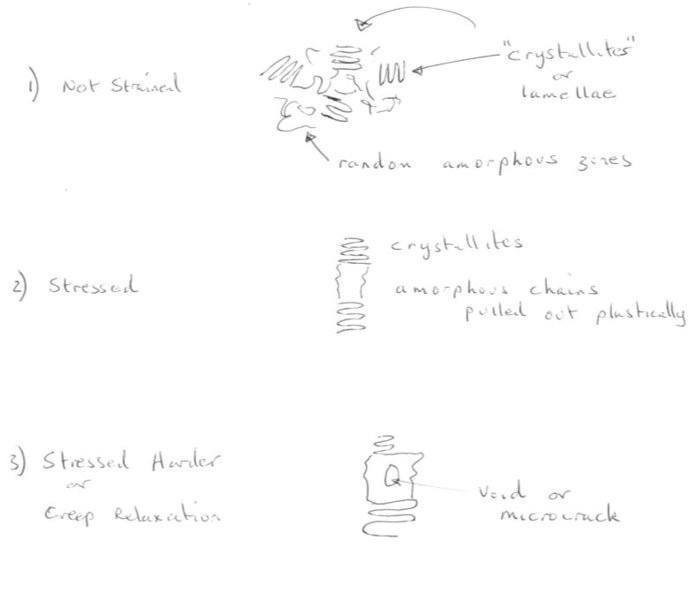 1) Not Strained
"crystallites"
or
lamellae
random amorphous zones
2) Stressed
crystallites
amorphous chains
pulled out plastically
3) Stressed Harder
or
Creep Relaxation
Void or
microcrack